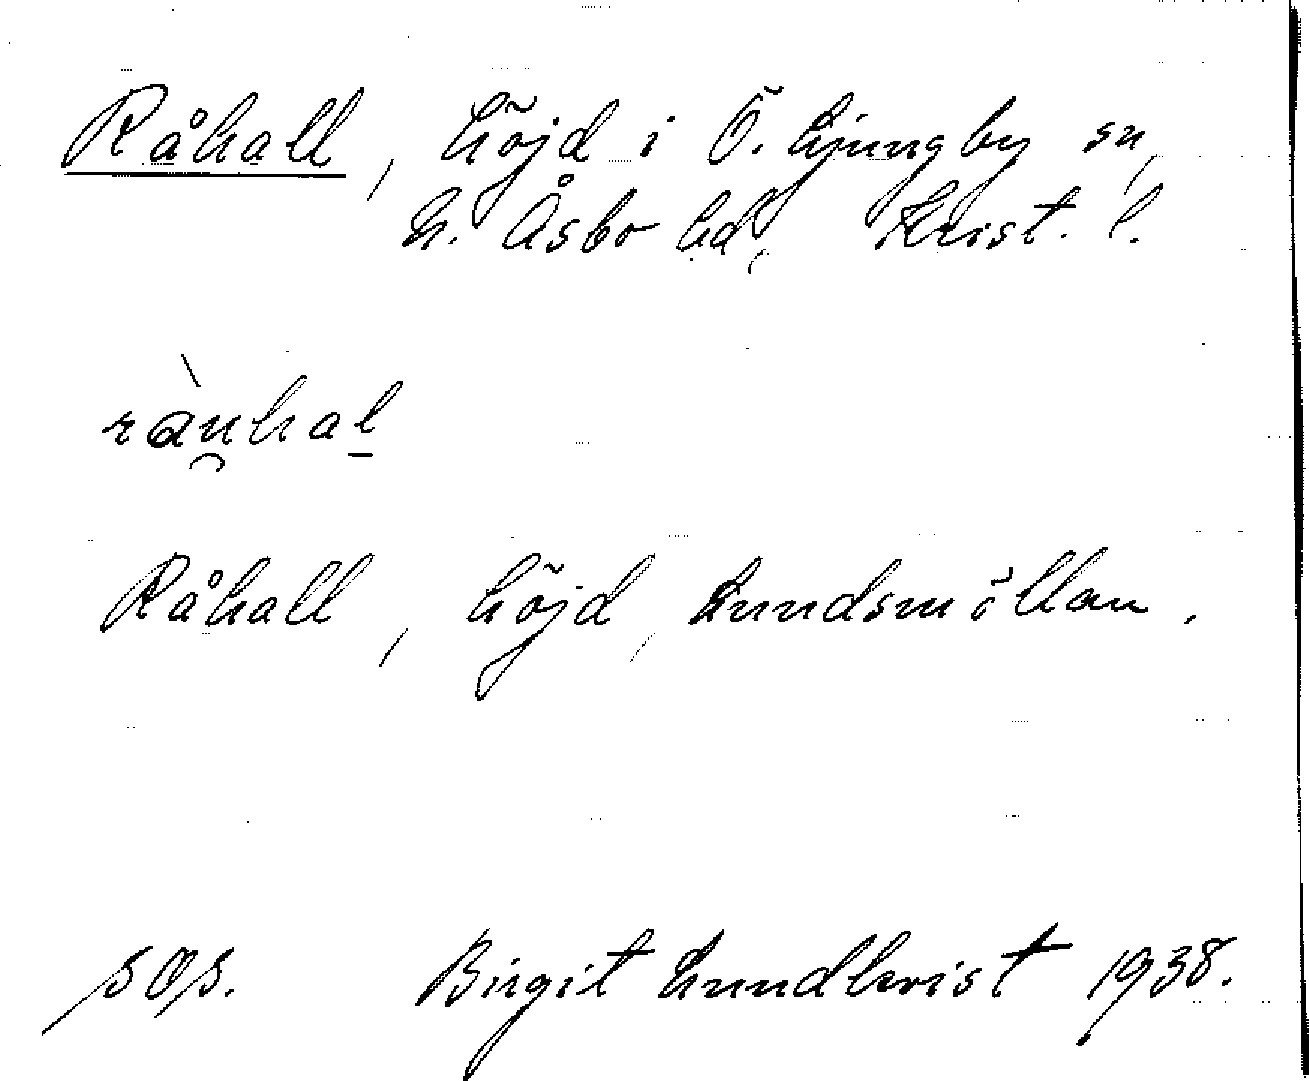 Råhall, höjd i Ö. Ljungby sn,
N. Åsbo hd, Krist. l.
ràu̯hal̲
Råhall, höjd, Lundsmöllan.
sOs. Birgit Lundkvist 1938.